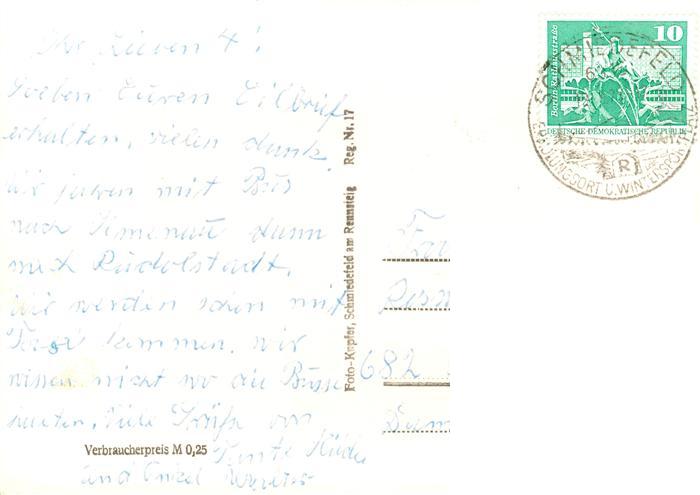 Ihr Lieben 4!
Soeben Euren Eilbrief
erhalten, vielen Dank.
Wir fahren mit Bus
nach Ilmenau dann
nach Rudolstadt.
Wir werden schon mit
Taxi kommen. Wir
wissen nicht wo die Busse
halten. Viele Grüße von
Tante
und Onkel
Verbraucherpreis M 0,25
Foto-Kupfer, Schmiedefeld am Rennsteig Reg. Nr. 17
10
Berlin-Rathausstraße
DEUTSCHE DEMOKRATISCHE REPUBLIK
SCHMIEDEFELD
ERHOLUNGSORT U. WINTERSPORTPLATZ
R
682